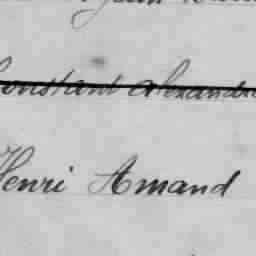 Constant Alexandre
Henri Amand